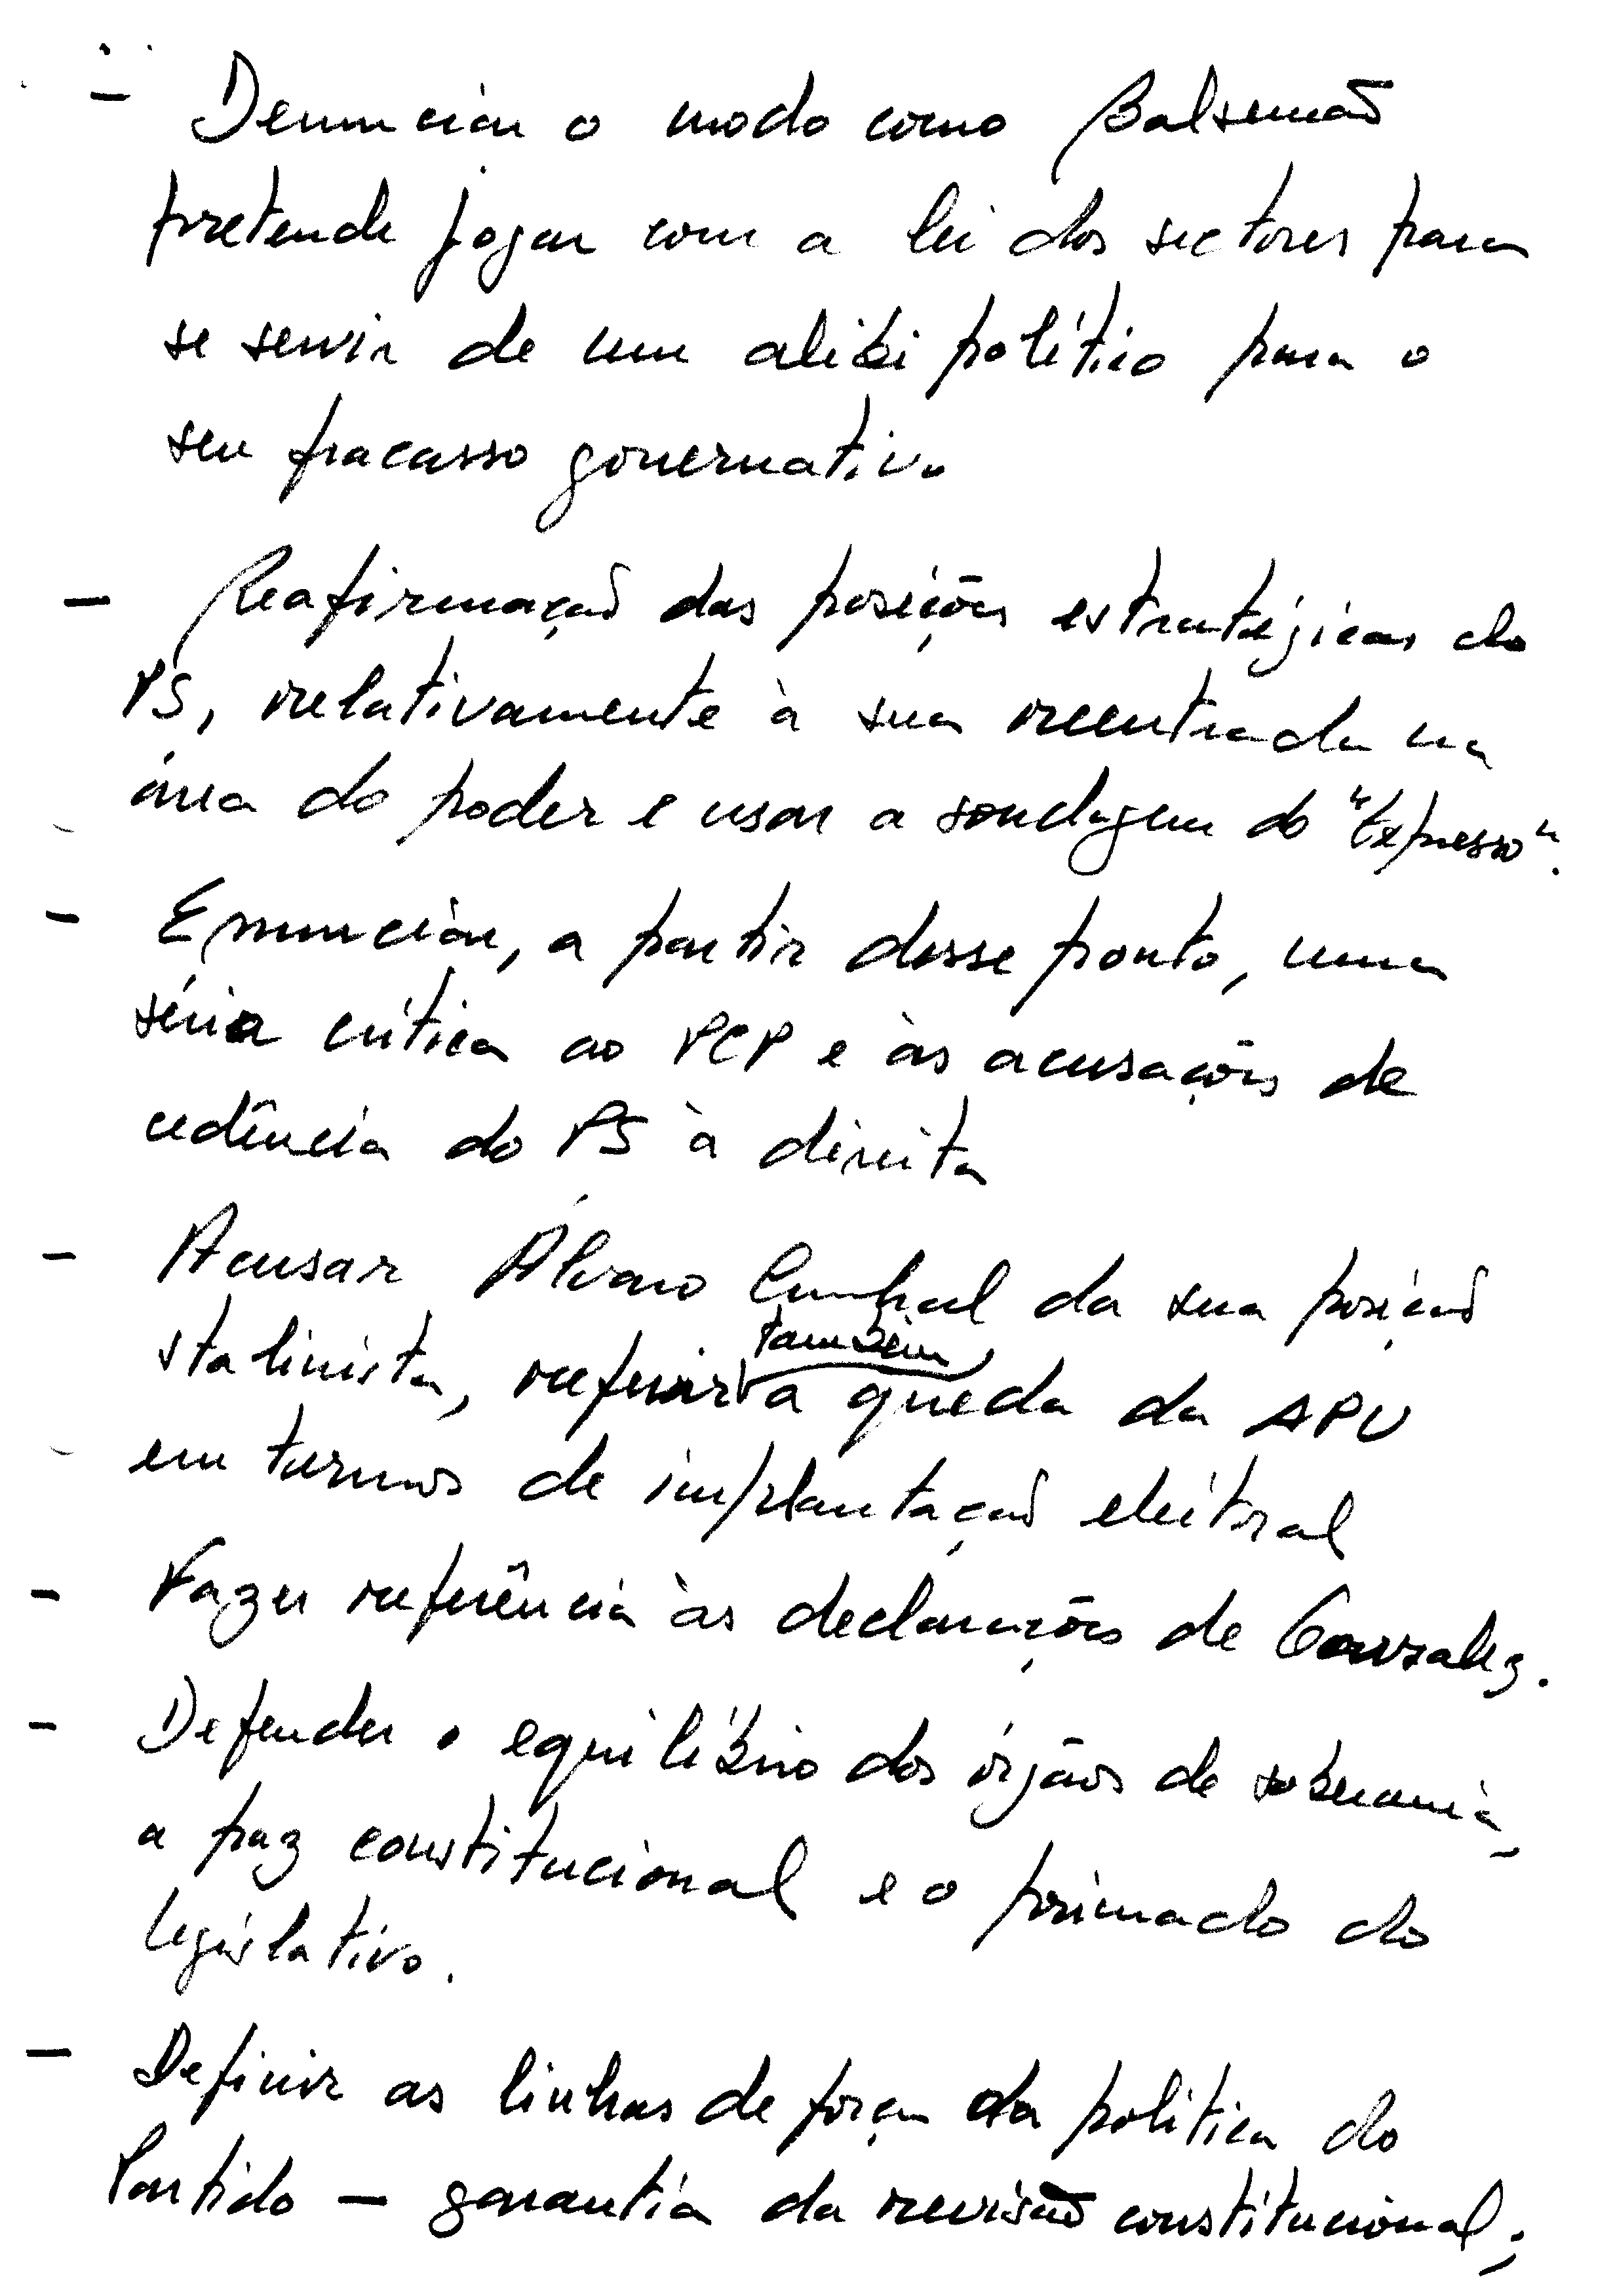 - Denunciar o modo como Balsemão
pretende jogar com a lei dos sectores para
se servir de um alibi político para o
seu fracasso governativo
- Reafirmação das posições estratégicas do
PS, relativamente à sua reentrada na
área do poder e usar a sondagem do "Expresso".
- Enunciar, a partir desse ponto, uma
séria crítica ao PCP e às acusações de
cedência do PS à direita
- Acusar Álvaro Cunhal da sua posição
também
stalinista, referir a queda da APU
em termos de implantação eleitoral
- Fazer referência às declarações de Gonzalez.
- Defender o equilíbrio dos órgãos de soberania,
a paz constitucional e o primado do
legislativo.
- Definir as linhas de força da política do
Partido - garantia da revisão constitucional;